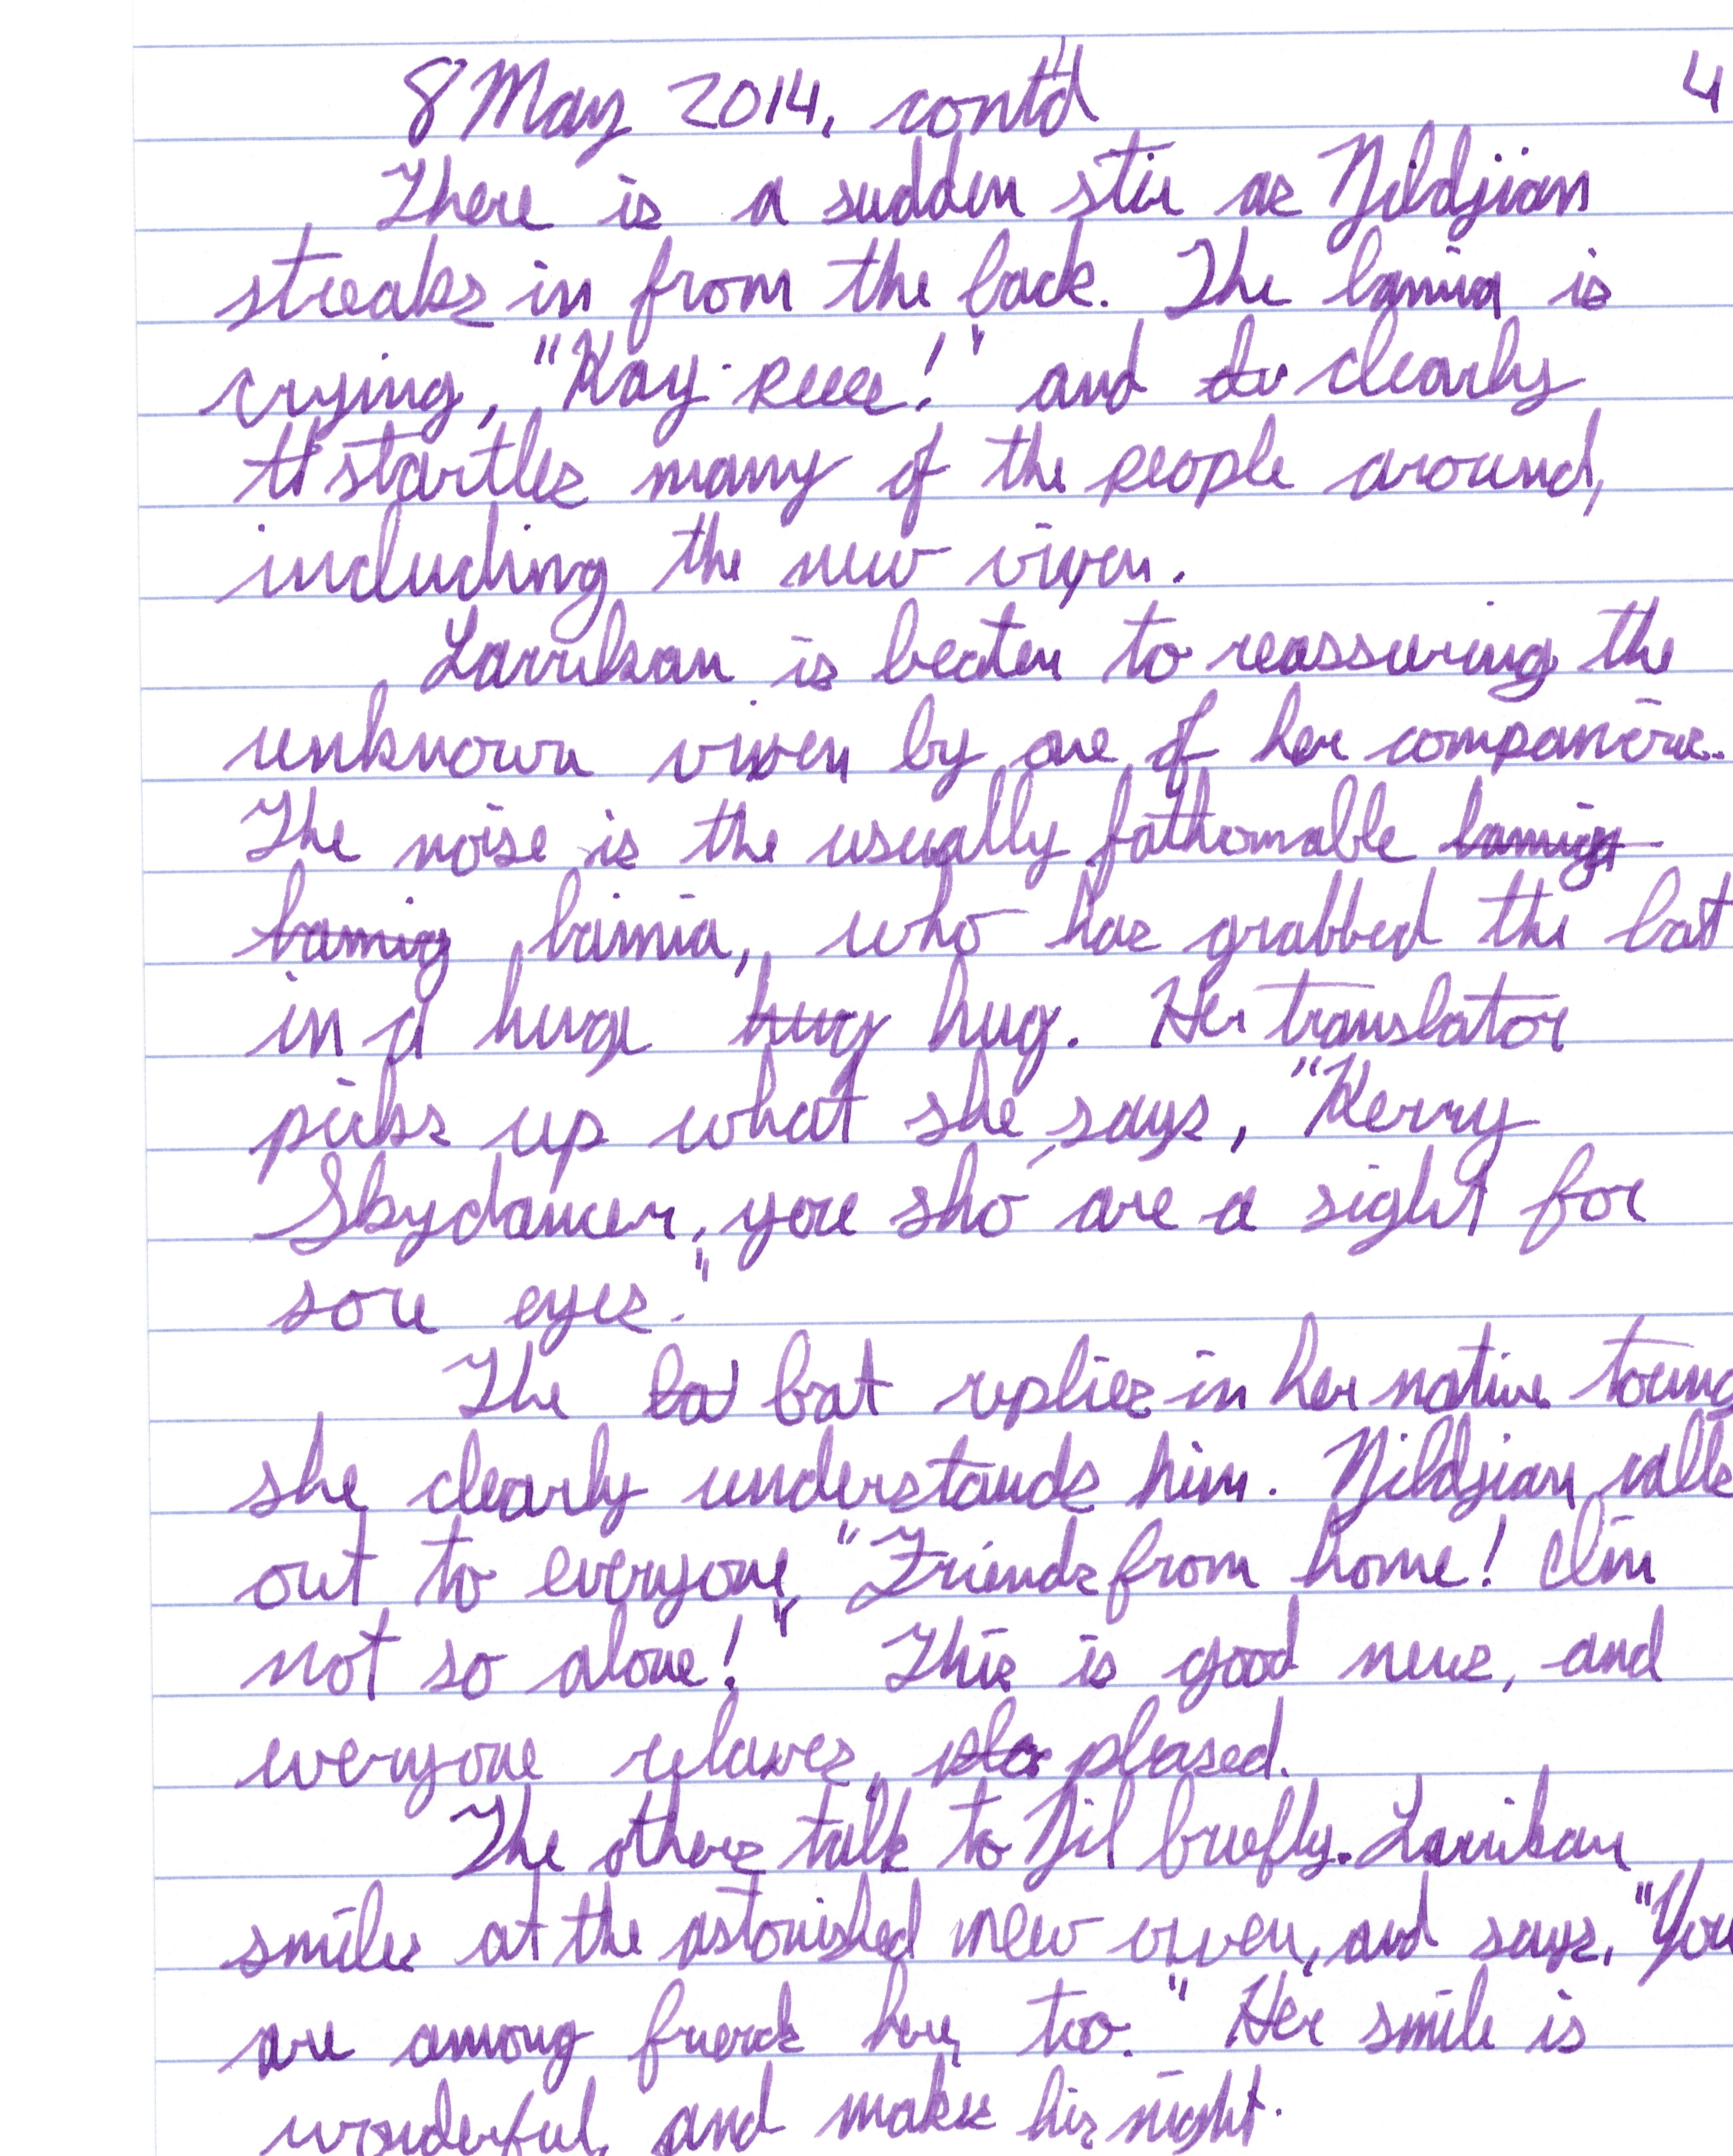 8 May 2014, cont'd 4
There is a sudden stir as Nildjian
streaks in from the back. The lamia is
crying, "Kay-reee!" and clearly
startles many of the people around,
including the new vixen.
Larrikan is beaten to reassuring the
unknown vixen by one of her companions.
The noise is the usually fathomable lamia
lamia lamia, who has grabbed the bat
in a huge hug hug. Her translator
picks up what she says, "Kerry
Skydancer, you sho' are a sight for
sore eyes."
The bat replies in her native toung
she clearly understands him. Nildjian calls
out to everyone, "Friends from home! I'm
not so alone!" This is good news, and
everyone relaxes, pleased.
The others talk to Nil briefly. Larrikan
smiles at the astonished new vixen, and says, "You
are among friends here, too." Her smile is
wonderful, and makes his night.